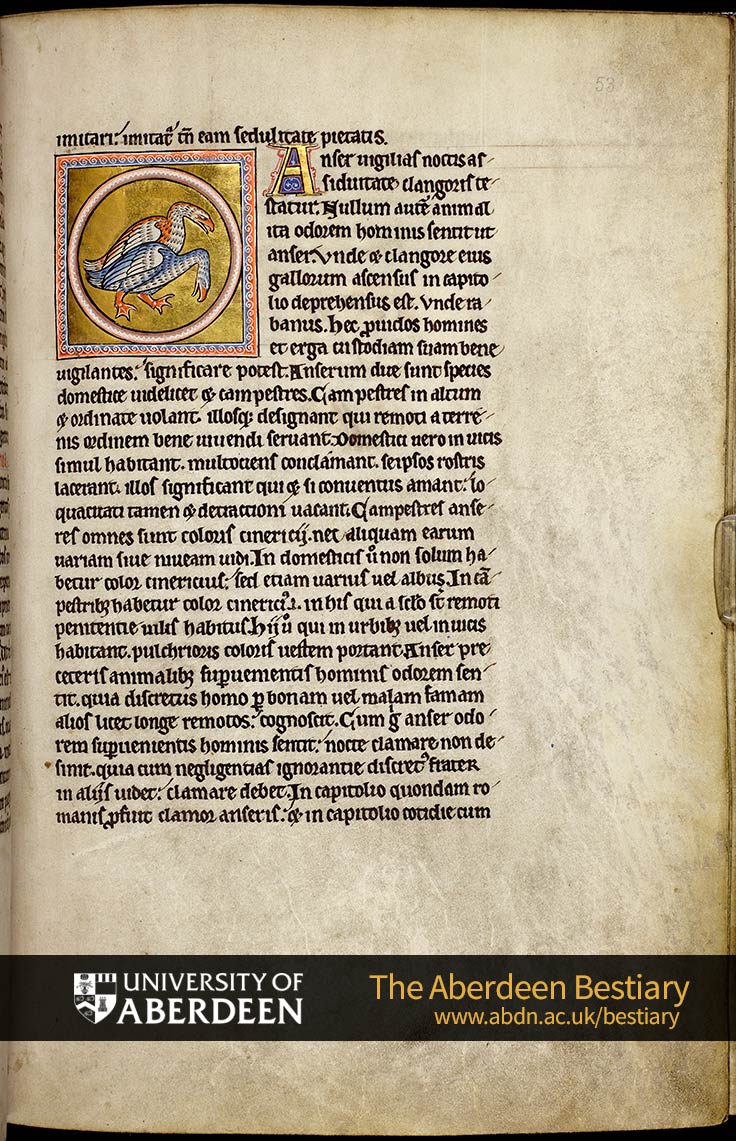 53
imitari. imitat͛ tn̄ eam sedulitate pietatis.
Anser uigilias noctis as
siduitate clangoris te
statur. Nullum autē animal
ita odorem hominis sentit ut
anser. Vnde ⁊ clangore eius
gallorum ascensus in capito
lio deprehensus est. Vnde ra
banus. Hec ꝓuidos homines
et erga custodiam suam bene
uigilantes. significare potest. Anserum due sunt species
domestice uidelicet ⁊ campestres. Campestres in altum
⁊ ordinate uolant. illosqꝫ designant qui remoti a terre
nis ordinem bene uiuendi seruant. Domestici uero in uicis
simul habitant. multociens conclamant. seipsos rostris
lacerant. illos significant qui ⁊ si conuentus amant. lo
quacitati tamen ⁊ detractioni uacant. Campestres anse
res omnes sunt coloris cinericij. nec aliquam earum
uariam siue niueam uidi. In domesticis ū non solum ha
betur color cinericius. sed etiam uarius uel albus. In cā
pestribꝫ habetur color cinericiꝰ. i. in his qui a sc̄lo st̄ remoti
penitentie uilis habitus. Hij ū qui in urbibꝫ uel in uicis
habitant. pulchrioris coloris uestem portant. Anser pre
ceteris animalibꝫ supuenientis hominis odorem sen
tit. quia discretus homo ꝑ bonam uel malam famam
alios licet longe remotos. cognoscit. Cum g̅ anser odo
rem supuenientis hominis sentit. nocte clamare non de
sinit. quia cum negligentias ignorantie discretꝰ frater
in alijs uidet. clamare debet. In capitolio quondam ro
manis ꝓfuit clamor anseris. ⁊ in capitolio cotidie cum
UNIVERSITY OF
ABERDEEN
The Aberdeen Bestiary
www.abdn.ac.uk/bestiary